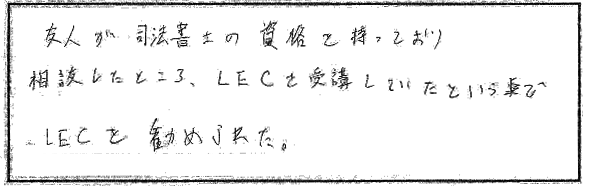 友人が司法書士の資格を持っており
相談したところ、LECを受講していたという事で
LECを勧められた。